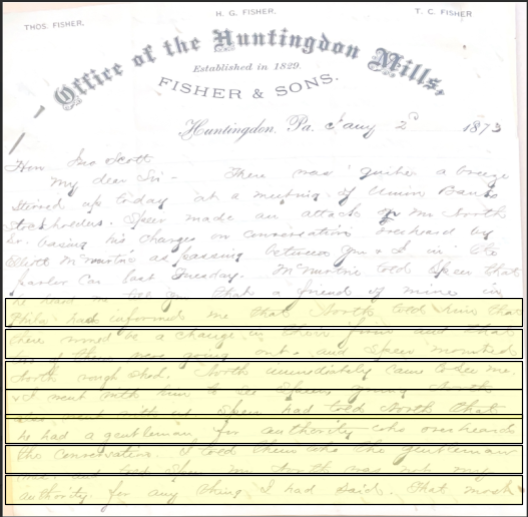 THOS. FISHER. H. G. FISHER. T. C. FISHER
Office of the Huntingdon Mills,
Established in 1829.
FISHER & SONS.
Huntingdon, Pa. Jany 2d 1873
Hon Jno Scott
My dear Sir - There was quite a breeze
stirred up today at a meeting of Union Bank
Stockholders. Speer made an attack on Mr North
Sr. basing his charges on conversation overheard by
McMurtrie as passing between you & I in the
parlor car last Tuesday. McMurtrie told Speer that
he heard me tell you that a friend of mine in
Phila. had informed me that North told him that
there would be a change in their firm and that
two of them were going out. and Speer mounted
North rough shod. North immediately came to see me.
& I went with him to see Speer young North
also went with us Speer had told North that
he had a gentleman for authority who overheard
the conversation. I told them who the gentleman
was and told Speer Mr North was not my
authority for any thing I had said. That